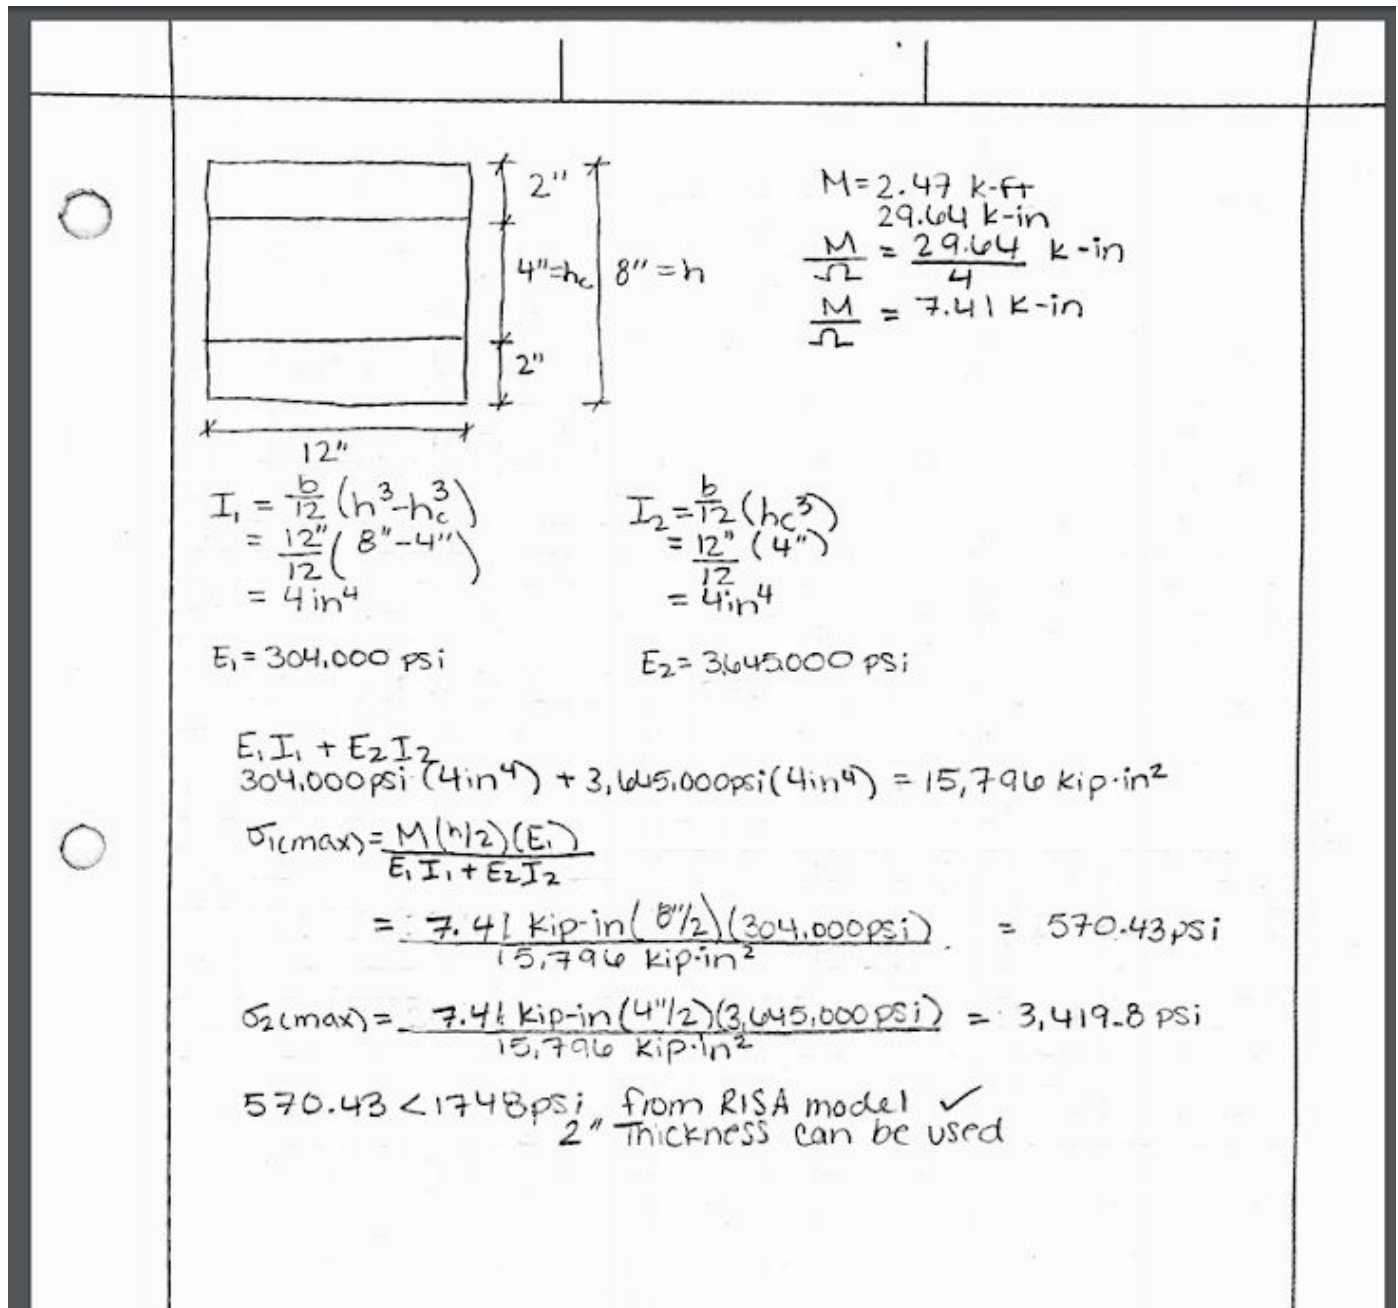 2"
4"=hc
8"=h
2"
12"
M=2.47 k-ft
29.64 k-in
M/Ω = 29.64/4 k-in
M/Ω = 7.41 k-in
I₁ = b/12 (h³-hc³)
= 12"/12 (8"-4")
= 4in⁴
I₂ = b/12 (hc³)
= 12"/12 (4")
= 4in⁴
E₁=304,000 psi
E₂=3,645,000 psi
E₁I₁ + E₂I₂
304,000psi (4in⁴) + 3,645,000psi(4in⁴) = 15,796 kip·in²
σ₁(max)= M(h/2)(E₁) / E₁I₁ + E₂I₂
= 7.41 kip-in(8"/2)(304,000psi) / 15,796 kip·in² = 570.43psi
σ₂(max)= 7.41 kip-in(4"/2)(3,645,000psi) / 15,796 kip·in² = 3,419.8 psi
570.43 < 1748psi, from RISA model ✓
2" Thickness can be used